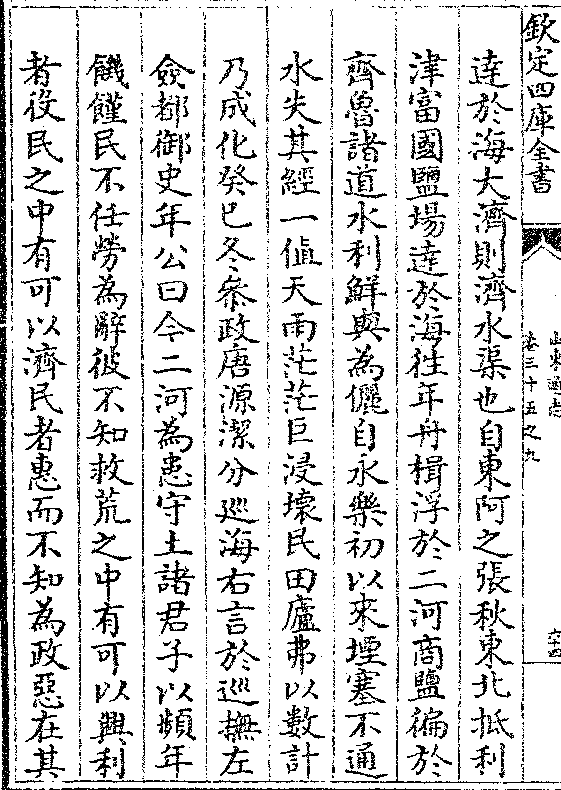 欽定四庫全書
山東通志
卷三十五之九
六十四
達於海大濟則濟水渠也自東阿之張秋東北抵利
津富國鹽場達於海往年舟楫浮於二河商鹽徧於
齊魯諸道水利鮮與為儷自永樂初以來堙塞不通
水失其經一值天雨茫茫巨浸壊民田廬弗以數計
乃成化癸巳冬叅政唐源潔分巡海右言於巡撫左
僉都御史年公曰今二河為患守土諸君子以頻年
饑饉民不任勞為辭彼不知救荒之中有可以興利
者役民之中有可以濟民者惠而不知為政惡在其